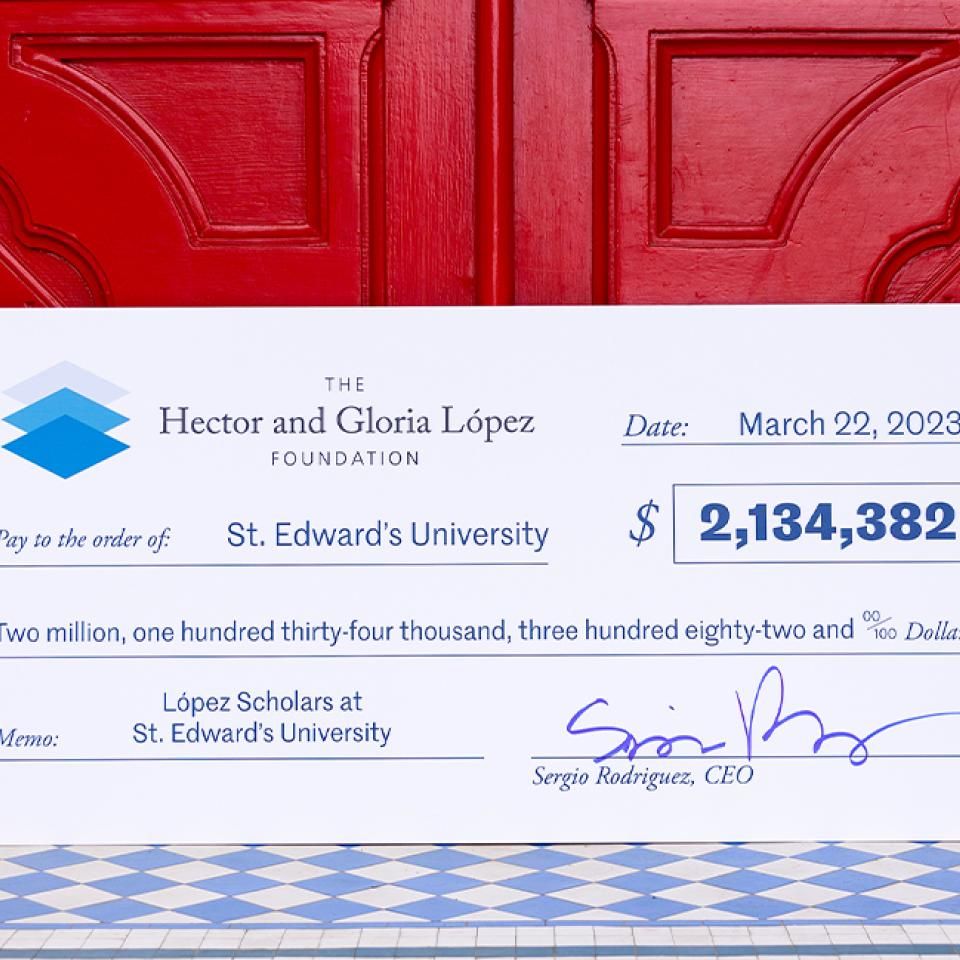 THE
Hector and Gloria López
FOUNDATION
Date: March 22, 2023
Pay to the order of: St. Edward's University
$ 2,134,382
Two million, one hundred thirty-four thousand, three hundred eighty-two and 00/100 Dolla
López Scholars at
Memo: St. Edward's University
Sergio Rodriguez, CEO